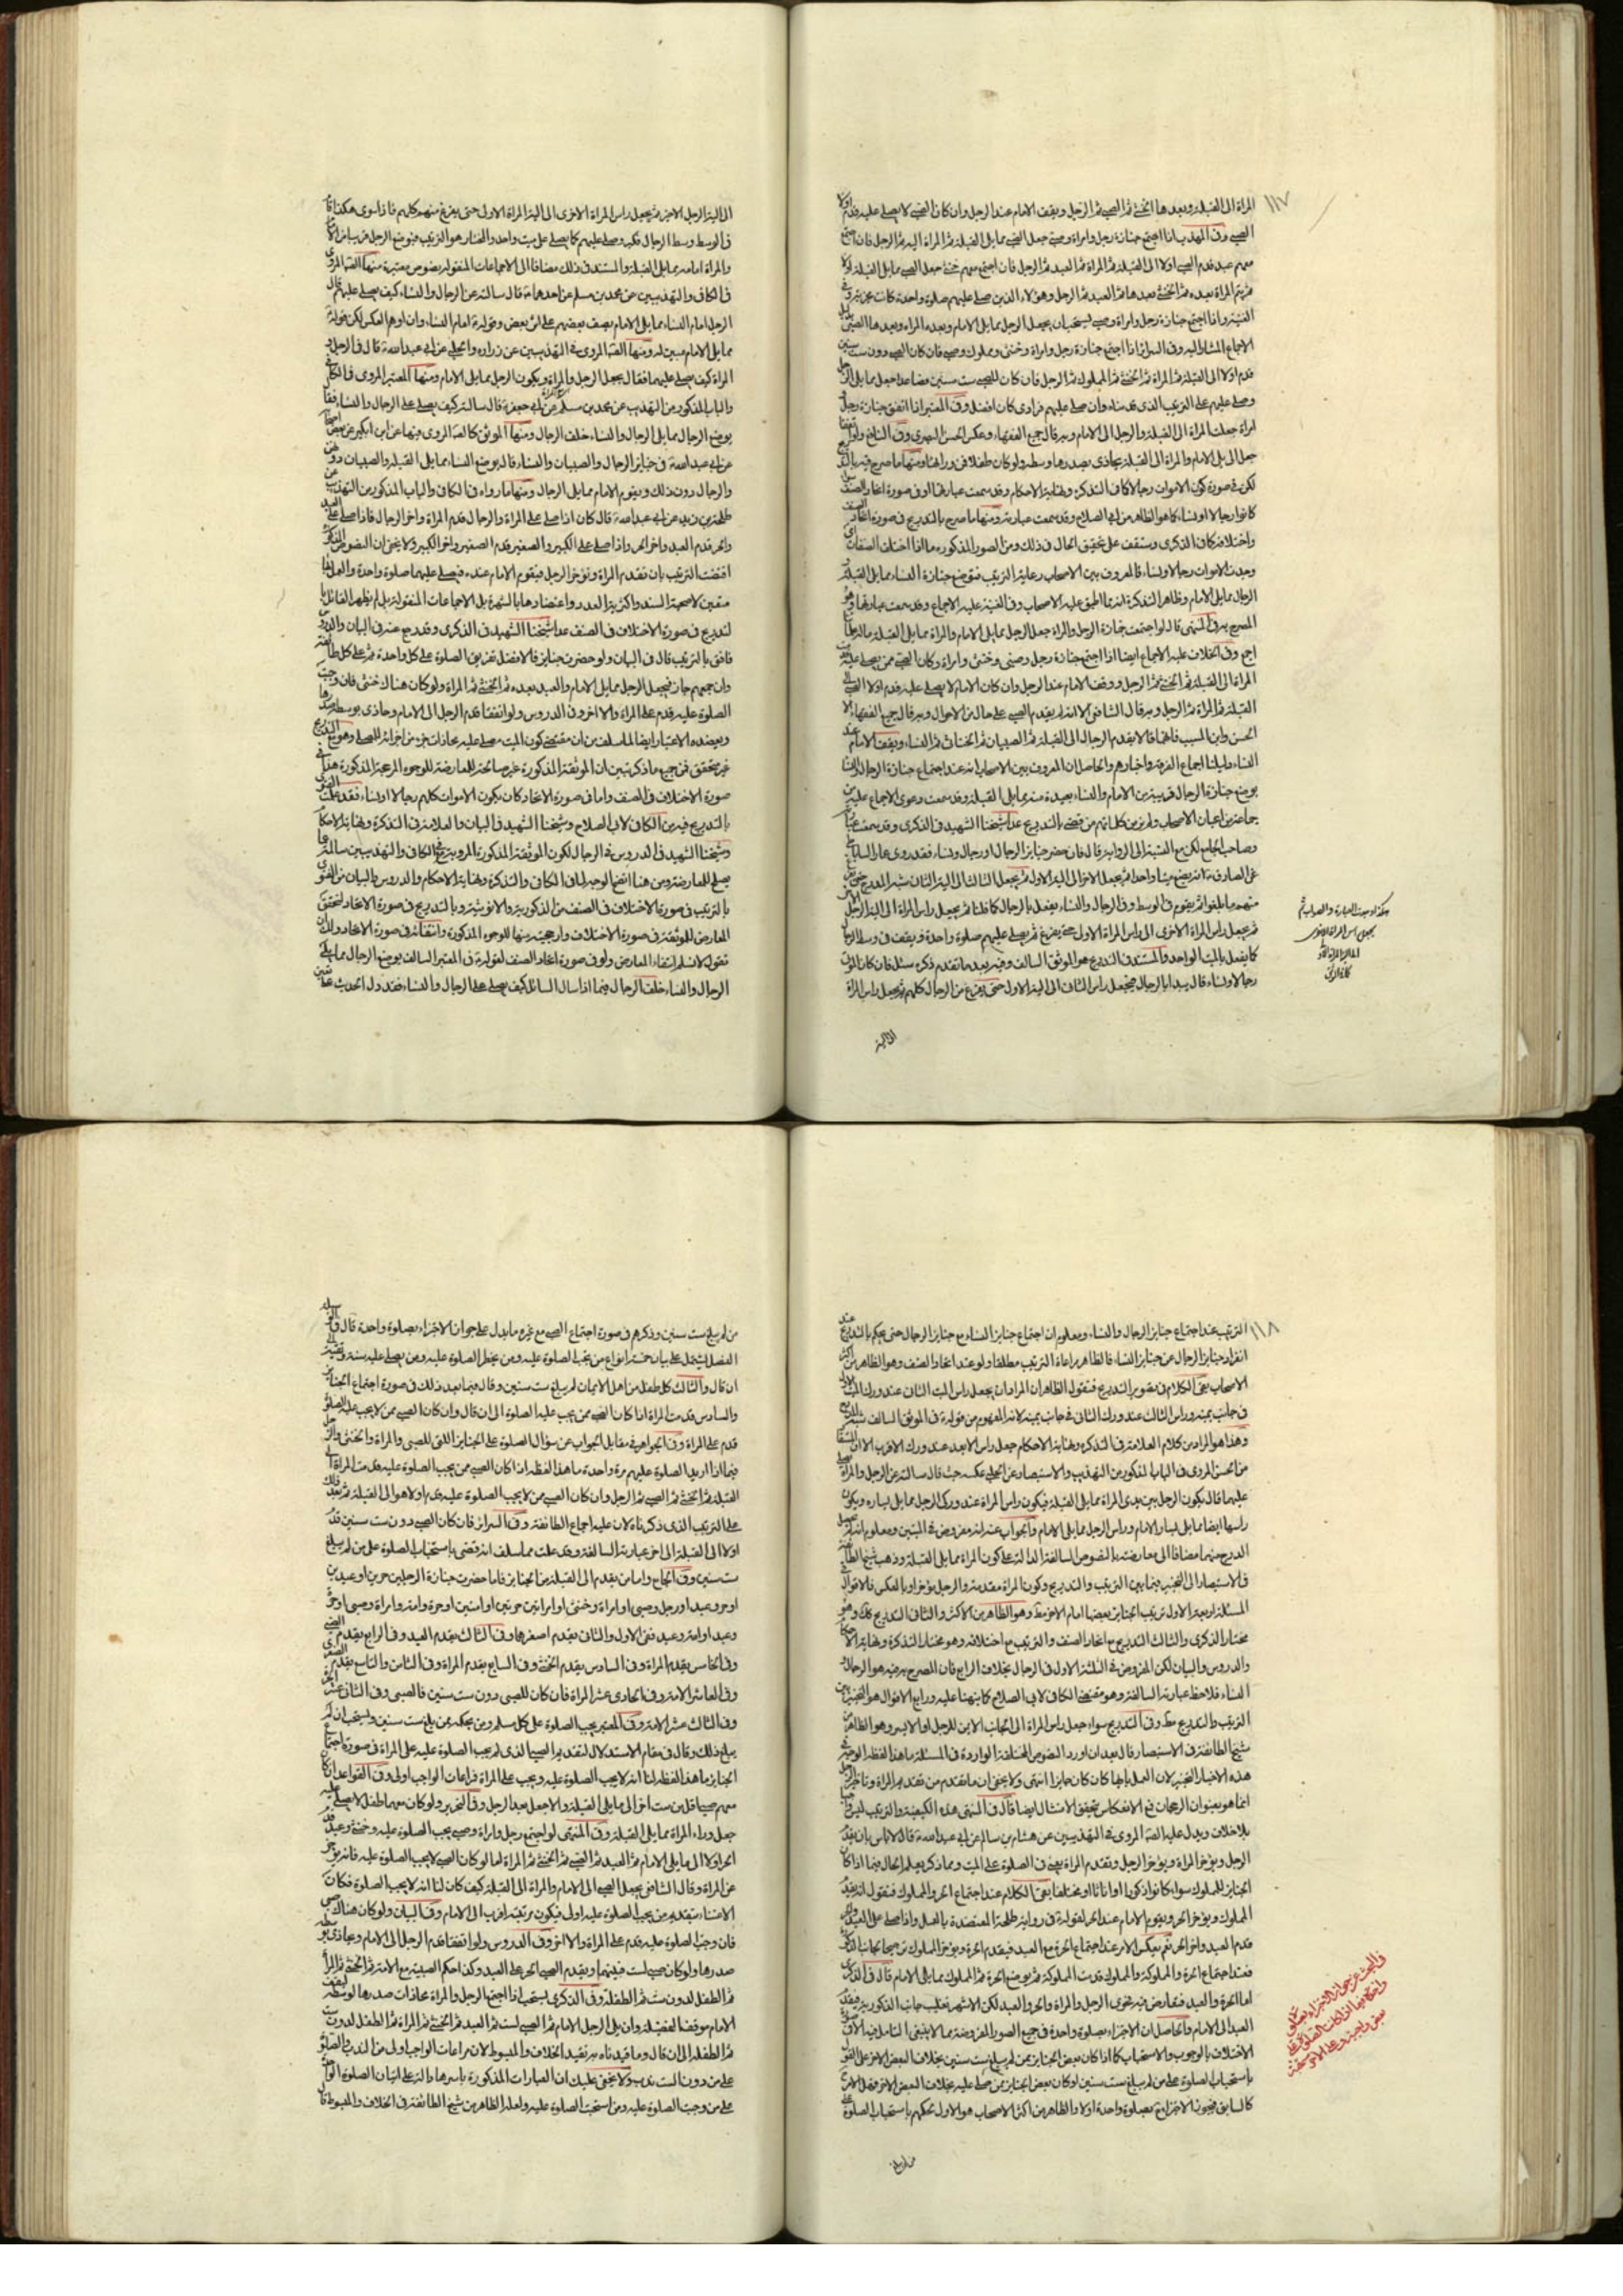 ١١٧
المراة الى القبلة وبعدها الخنثى ثم الصبي ثم الرجل ويقف الامام عند الرجل وان كان الصبي لا يصلى عليه قدم اولا
الصبي وفي المهذب اذا اجتمع جنازة رجل وامراة وصبي جعل الصبي مما يلى القبلة ثم المراة اليه ثم الرجل فان اجتمع
معهم عبد قدم الصبي اولا الى القبلة ثم المراة ثم العبد ثم الرجل فان اجتمع معهم خنثى جعل الصبي مما يلى القبلة اولا
ثم المراة بعده ثم الخنثى بعدها ثم العبد ثم الرجل وهؤلاء الذين صلى عليهم صلوة واحدة كانت
الغنية واذا اجتمع جنازة رجل وامراة وصبي يستحب ان يجعل الرجل مما يلى الامام وبعده المراة وبعدها الصبي
الاجماع المشار اليه وفي السرائر اذا اجتمع جنازة رجل وامراة وخنثى ومملوك وصبي فان كان الصبي دون ست سنين
قدم اولا الى القبلة ثم المراة ثم الخنثى ثم المملوك ثم الرجل فان كان للصبي ست سنين فصاعدا جعل مما يلى الرجل
وصلى عليهم على الترتيب الذي قدمناه وان صلى عليهم فرادى كان افضل وفي المعتبر اذا اتفق جنازة رجل
امراة جعلت المراة الى القبلة والرجل الى الامام وبه قال جميع الفقهاء وعكس الحسن البصري وفي النافع ولو اتفقا
جعل الرجل الى الامام والمراة الى القبلة يحاذى بصدرها وسطه ولو كان طفلا فمن ورائها ومنها ما صرح فيه
لكن في صورة كون الاموات رجالا كافي التذكرة ونهاية الاحكام وقد سمعت عبارتهما او في صورة اتحاد الصنف
كانوا رجالا او نساء كما هو الظاهر من ابي الصلاح وقد سمعت عبارته ومنها ما صرح بالتدريج في صورة اتحاد
واختلافه كما في الذكرى وستقف على تحقيق الحال في ذلك ومن الصور المذكورة ما اذا اختلف الصنفان
وجدت الاموات رجالا ونساء فالمعروف بين الاصحاب رعاية الترتيب فتوضع جنازة النساء مما يلى القبلة
الرجال مما يلى الامام وظاهر التذكرة انه مما اطبق عليه الاصحاب وفي الغنية عليه الاجماع وقد سمعت عبارتها
المصرح به في المنتهى قال لو اجتمعت جنازة الرجل والمراة جعل الرجل مما يلى الامام والمراة مما يلى القبلة
اجمع وفي الخلاف عليه الاجماع ايضا اذا اجتمع جنازة رجل وصبي وخنثى وامراة وكان الصبي ممن يصلى عليه
المراة الى القبلة ثم الخنثى ثم الرجل ووقف الامام عند الرجل وان كان الامام لا يصلى عليه قدم اولا الصبي
القبلة ثم المراة ثم الرجل وبه قال الشافعي الا انه لم يقدم الصبي على حال من الاحوال وبه قال جميع الفقهاء الا
الحسن وابن المسيب فانهما قالا يقدم الرجال الى القبلة ثم الصبيان ثم الخناثى ثم النساء ويقف الامام عند
النساء دليلنا اجماع الفرقة واخبارهم والحاصل ان المعروف بين الاصحاب انه عند اجتماع جنازة الرجال والنساء
يوضع جنازة الرجال قريبة من الامام والنساء بعيدة منه مما يلى القبلة وقد سمعت دعوى الاجماع عليه من
جماعة من اعيان الاصحاب ولم نر من كلماتهم من قضى بالتدريج عدا شيخنا الشهيد في الذكرى وقد سمعت عبارته
وصاحب الجامع لكن مع النسبة الى الرواية قال فان حضر جنايز الرجال او رجال ونساء فقد روى عمار الساباطي
عن الصادق ع انه يضع ميتا واحدا ثم يجعل الاخر الى الية الاول ثم يجعل الثالث الى الية الثاني شبه المدرج حتى يفرغ
منهم ما بلغوا ثم يقوم في الوسط وفي الرجال والنساء يفعل بالرجال كما قلنا ثم يجعل راس المراة الى الية الرجل
ثم يجعل راس المراة الاخرى الى راس المراة الاولى حتى يفرغ ثم يصلى عليهم صلوة واحدة ويقف في وسط الرجال
كما يفعل بالميت الواحد والمستند في التدريج هو الموثق السالف وفيه بعد ما تقدم ذكره سئل فان كان الموتى
رجالا ونساء قال يبدا بالرجال فيجعل راس الثاني الى الية الاول حتى يفرغ من الرجال كلهم ثم يجعل راس المراة
الى الية
هكذا وجدت العبارة والصواب ثم
يجعل راس المراة الاخرى
الى الية المراة الاولى
الى الية الرجل الاخير ثم يجعل راس المراة الاخرى الى الية المراة الاولى حتى يفرغ منهم كلهم فاذا سوى هكذا قام
في الوسط وسط الرجال فكبر وصلى عليهم كما يصلى على ميت واحد والمختار هو الترتيب فيوضع الرجل قريبا من الامام
والمراة امامه مما يلى القبلة والمستند في ذلك مضافا الى الاجماعات المنقولة نصوص معتبرة منها الصحيح المروي
في الكافي والتهذيبين عن محمد بن مسلم عن احدهما ع قال سالته عن الرجال والنساء كيف يصلى عليهم قال
الرجل امام النساء مما يلى الامام يصف بعضهم على اثر بعض وقوله امام النساء وان اوهم العكس لكن قوله
مما يلى الامام مبين له ومنها الصحيح المروي في التهذيبين عن زرارة والحلبي عن ابي عبد الله ع قال في الرجل و
المراة كيف يصلى عليهما فقال يجعل الرجل والمراة ويكون الرجل مما يلى الامام ومنها المعتبر المروي في الكافي
والباب المذكور من التهذيب عن محمد بن مسلم عن ابي جعفر ع قال سالته كيف يصلى على الرجال والنساء فقال
يوضع الرجال مما يلى الرجال والنساء خلف الرجال ومنها الموثق كالصحيح المروي فيها عن ابن بكير عن بعض اصحابنا
عن ابي عبد الله ع في جنايز الرجال والصبيان والنساء قال يوضع النساء مما يلى القبلة والصبيان دونهن
والرجال دون ذلك ويقوم الامام مما يلى الرجال ومنها ما رواه في الكافي والباب المذكور من التهذيب عن
طلحة بن زيد عن ابي عبد الله ع قال كان اذا صلى على المراة والرجل قدم المراة واخر الرجل فاذا صلى على العبد
والحر قدم العبد واخر الحر واذا صلى على الكبير والصغير قدم الصغير واخر الكبير ولا يخفى ان النصوص المذكورة
اقتضت الترتيب بان تقدم المراة وتؤخر الرجل فيقوم الامام عنده فيصلى عليهما صلوة واحدة والعمل بها
متعين لاصحية السند واكثرية العدد واعتضادها بالشهرة بل الاجماعات المنقولة بل لم يظهر القائل با
لتدريج في صورة الاختلاف في الصنف عدا شيخنا الشهيد في الذكرى وقد رجع عنه في البيان والدروس
فافتى بالترتيب قال في البيان ولو حضرت جنايز فالافضل تفريق الصلوة على كل واحدة ثم على كل طائفة
وان جمعهم جاز فيجعل الرجل مما يلى الامام والعبد بعده ثم الخنثى ثم المراة ولو كان هناك خنثى فان وجبت
الصلوة عليه قدم على المراة والا اخر وفي الدروس ولو اتفقا قدم الرجل الى الامام وحاذى بوسطه صدرها
ويعضده الاعتبار ايضا لما سلف من ان مقتضى كون الميت مصلى عليه محاذات جزء من اجزائه للمصلى وهو مع التدريج
غير متحقق فمن جميع ما ذكر تبين ان الموثقة المذكورة غير صالحة للمعارضة للوجوه المرجحة المذكورة هذا في
صورة الاختلاف في الصنف واما في صورة الاتحاد كان يكون الاموات كلهم رجالا او نساء فقد علمت التصريح
بالتدريج فيه من الكافي لابي الصلاح وشيخنا الشهيد في البيان والعلامة في التذكرة ونهاية الاحكام
وشيخنا الشهيد في الدروس في الرجال لكون الموثقة المذكورة المروية في الكافي والتهذيبين سالمة عما
يصلح للمعارضة ومن هنا اتضح الوجه لما في الكافي والتذكرة ونهاية الاحكام والدروس والبيان من الفتوى
بالترتيب في صورة الاختلاف في الصنف من الذكورية والانوثية وبالتدريج في صورة الاتحاد لتحقق
المعارض للموثقة في صورة الاختلاف وارجحيته منها للوجوه المذكورة وانتفائه في صورة الاتحاد ولك ان
تقول لا نسلم انتفاء المعارض ولو في صورة اتحاد الصنف لقوله في المعتبر السالف يوضع الرجال مما يلى
الرجال والنساء خلف الرجال فيما اذا سال السائل كيف يصلى على الرجال والنساء فقد دل الحديث على تعين
١١٨
الترتيب عند اجتماع جنايز الرجال والنساء ومعلوم ان اجتماع جنايز النساء مع جنايز الرجال حتى يحكم بالتدريج عند
انفراد جنايز الرجال عن جنايز النساء فالظاهر مراعاة الترتيب مطلقا ولو عند اتحاد الصنف وهو الظاهر من اكثر
الاصحاب بقى الكلام في تصوير التدريج فنقول الظاهر ان المراد ان يجعل راس الميت الثاني عند ورك الميت الاول
في جانب يمينه وراس الثالث عند ورك الثاني في جانب يمينه لانه المفهوم من قوله في الموثق السالف شبه المدرج
وهذا هو المراد من كلام العلامة في التذكرة ونهاية الاحكام جعل راس الابعد عند ورك الاقرب الا ان
من الحسن المروي في الباب المذكور من التهذيب والاستبصار عن الحلبي عكسه حيث قال سالته عن الرجل والمراة يصلى
عليهما قال يكون الرجل بين يدي المراة مما يلى القبلة فيكون راس المراة عند وركى الرجل مما يلى يساره ويكون
راسها ايضا مما يلى يسار الامام وراس الرجل مما يلى يمين الامام والجواب عنه انه مفروض في الميتين ومعلوم انه لم يحصل
الدرج منهما مضافا الى معارضته بالنصوص السالفة الدالة على كون المراة مما يلى القبلة وذهب شيخ الطائفة
في الاستبصار الى التخيير فيما بين الترتيب والتدريج وكون المراة مقدمة والرجل مؤخرا وبالعكس فالاقوال في
المسئلة اربعة الاول ترتيب الجنايز بعضها امام الاخر مط وهو الظاهر من الاكثر والثاني التدريج كك وهو
مختار الذكرى والثالث التدريج مع اتحاد الصنف والترتيب مع اختلافه وهو مختار التذكرة ونهاية الاحكام
والدروس والبيان لكن المفروض في الثلثة الاول في الرجال بخلاف الرابع فان المصرح به فيه هو الرجال و
النساء فلاحظ عبارته السالفة وهو مقتضى الكافي لابي الصلاح كما نبهنا عليه ورابع الاقوال هو التخيير بين
الترتيب والتدريج مط وفي التدريج سواء جعل راس المراة الى الجانب الايمن للرجل او الايسر وهو الظاهر من
شيخ الطائفة في الاستبصار قال بعد ان اورد النصوص المختلفة الواردة في المسئلة ما هذا لفظه الوجه في
هذه الاخبار التخيير لان العمل بايها كان كان جايزا انتهى ولا يخفى ان ما تقدم من تقديم المراة وتاخير الرجل
انما هو بعنوان الرجحان فمع الانعكاس يتحقق الامتثال ايضا قال في المنتهى هذه الكيفية والترتيب ليس واجبا
بلا خلاف ويدل عليه الصحيح المروي في التهذيبين عن هشام بن سالم عن ابي عبد الله ع قال لا باس بان يقدم
الرجل ويؤخر المراة ويؤخر الرجل وتقدم المراة يعنى في الصلوة على الميت ومما ذكر يعلم الحال فيما اذا كان
الجنايز للمملوك سواء كانوا ذكورا او اناثا او مختلفا بقى الكلام عند اجتماع الحر والمملوك فنقول انه يقدم
المملوك ويؤخر الحر ويقوم الامام عند الحر لقوله في رواية طلحة المعتضدة بالعمل واذا صلى على العبد والحر
قدم العبد واخر الحر نعم يعكس الامر عند اجتماع الحرة مع العبد فيقدم الحرة ويؤخر المملوك ترجيحا لجانب الذكورة
فعند اجتماع الحرة والمملوكة والمملوك قدمت المملوكة ثم يوضع الحرة ثم المملوك مما يلى الامام قال في الذكرى
اما الحرة والعبد فتعارض فيه فحوى الرجل والمراة والحر والعبد لكن الاشهر تغليب جانب الذكورية فيقدم
العبد الى الامام والحاصل ان الاجتزاء بصلوة واحدة في جميع الصور المفروضة مما لا ينبغى التامل فيه الا في صورة
الاختلاف بالوجوب والاستحباب كما اذا كان بعض الجنايز ممن لم يبلغ ست سنين بخلاف البعض الاخر على القول
باستحباب الصلوة على من لم يبلغ ست سنين او كان بعض الجنايز ممن صلى عليه بخلاف البعض الاخر فهل الامر
كالسابق فيجوز الاجتزاء بصلوة واحدة اولا والظاهر من اكثر الاصحاب هو الاول لحكمهم باستحباب الصلوة على
من لم يبلغ
في البحث عن جواز الاجتزاء بصلوة
واحدة فيما اذا كانت الصلوة على
بعض واجبة وعلى الاخر مستحبة
من لم يبلغ ست سنين وذكرهم في صورة اجتماع الصبي مع غيره ما يدل على جواز الاجتزاء بصلوة واحدة قال في الوسيلة
الفصل يشتمل على بيان خمسة انواع من يجب الصلوة عليه ومن يحظر الصلوة عليه ومن يصلى عليه سنة وتقية الى
ان قال والثالث كل طفل من اهل الايمان لم يبلغ ست سنين وقال فيما بعد ذلك في صورة اجتماع الجنايز
والسادس قدمت المراة اذا كان الصبي ممن يجب عليه الصلوة الى ان قال وان كان الصبي ممن لا يجب عليه الصلوة
قدم على المراة وفي الجواهر في مقابل الجواب عن سؤال الصلوة على الجنايز اللتى للصبي والمراة والخنثى والرجل
فيما اذا اريد الصلوة عليهم مرة واحدة ما هذا لفظه اذا كان الصبي ممن يجب الصلوة عليه قدمت المراة الى
القبلة ثم الخنثى ثم الصبي ثم الرجل وان كان الصبي ممن لا يجب الصلوة عليه قدم اولا هو الى القبلة ثم بعد ذلك
على الترتيب الذي ذكرناه لان عليه اجماع الطائفة وفي السرائر فان كان الصبي دون ست سنين قدم
اولا الى القبلة الى اخر عبارته السالفة وقد علمت مما سلف انه قضى باستحباب الصلوة على من لم يبلغ
ست سنين وفي الجامع واما من يقدم الى القبلة من الجنايز فاما حضرت جنازة الرجلين حرين او عبدين
او حر وعبد او رجل وصبي او امراة وخنثى او امراتين حرتين او امتين او حرة وامة وامراة وصبي او حر
وعبد او امة وعبد ففي الاول والثاني يقدم اصغرهما وفي الثالث يقدم العبد وفي الرابع يقدم الصبي
وفي الخامس يقدم المراة وفي السادس يقدم الخنثى وفي السابع يقدم المراة وفي الثامن والتاسع يقدم الصغرى
وفي العاشر الامة وفي الحادي عشر المراة فان كان للصبي دون ست سنين فالصبي وفي الثاني عشر الحر
وفي الثالث عشر الامة وفي المعتبر يجب الصلوة على كل مسلم ومن بحكمه ممن بلغ ست سنين ويستحب ان لم
يبلغ ذلك وقال في مقام الاستدلال لتقديم الصبي الذي لم يجب الصلوة عليه على المراة في صورة اجتماع
الجنايز ما هذا لفظه لنا انه لا يجب الصلوة عليه ويجب على المراة فمراعات الواجب اولى وفي القواعد ان كان
معهم صبي له اقل من ست اخر الى ما يلى القبلة والا جعل بعد الرجل وفي التحرير ولو كان معهما طفل لا يصلى عليه
جعل وراء المراة مما يلى القبلة وفي المنتهى لو اجتمع رجل وامراة وصبي يجب الصلوة عليه وخنثى وعبد قدم
الحر اولا الى ما يلى الامام ثم العبد ثم الصبي ثم الخنثى ثم المراة اما لو كان الصبي لا يجب الصلوة عليه فانه يؤخر
عن المراة وقال الشافعي يجعل الصبي الى الامام والمراة الى القبلة كيف كان لنا انه لا يجب الصلوة فكان
الاعتناء بتقديم من يجب الصلوة عليه اولى فيكون مرتبته اقرب الى الامام وفي البيان ولو كان هناك صبي
فان وجب الصلوة عليه قدم على المراة والا اخر وفي الدروس ولو اتفقا قدم الرجل الى الامام وحاذى بوسطه
صدرها ولو كان صبي لست فبينهما ويقدم الصبي الحر على العبد وكذا حكم الصبية مع الامة ثم الخنثى ثم المراة
ثم الطفل لدون ست ثم الطفلة وفي الذكرى يستحب اذا اجتمع الرجل والمراة محاذات صدرها لوسطه ليقف
الامام موقف الفضيلة وان يلى الرجل الامام ثم الصبي لست ثم العبد ثم الخنثى ثم المراة ثم الطفل لدون ست
ثم الطفلة الى ان قال وما قيدناه به نقيد الخلاف والمبسوط لان مراعات الواجب اولى من الندب والصلوة
على من دون الست ندب ولا يخفى عليك ان العبارات المذكورة باسرها دالة على اتيان الصلوة الواحدة
على من وجبت الصلوة عليه ومن استحبت الصلوة عليه ولعله الظاهر من شيخ الطائفة في الخلاف والمبسوط قال